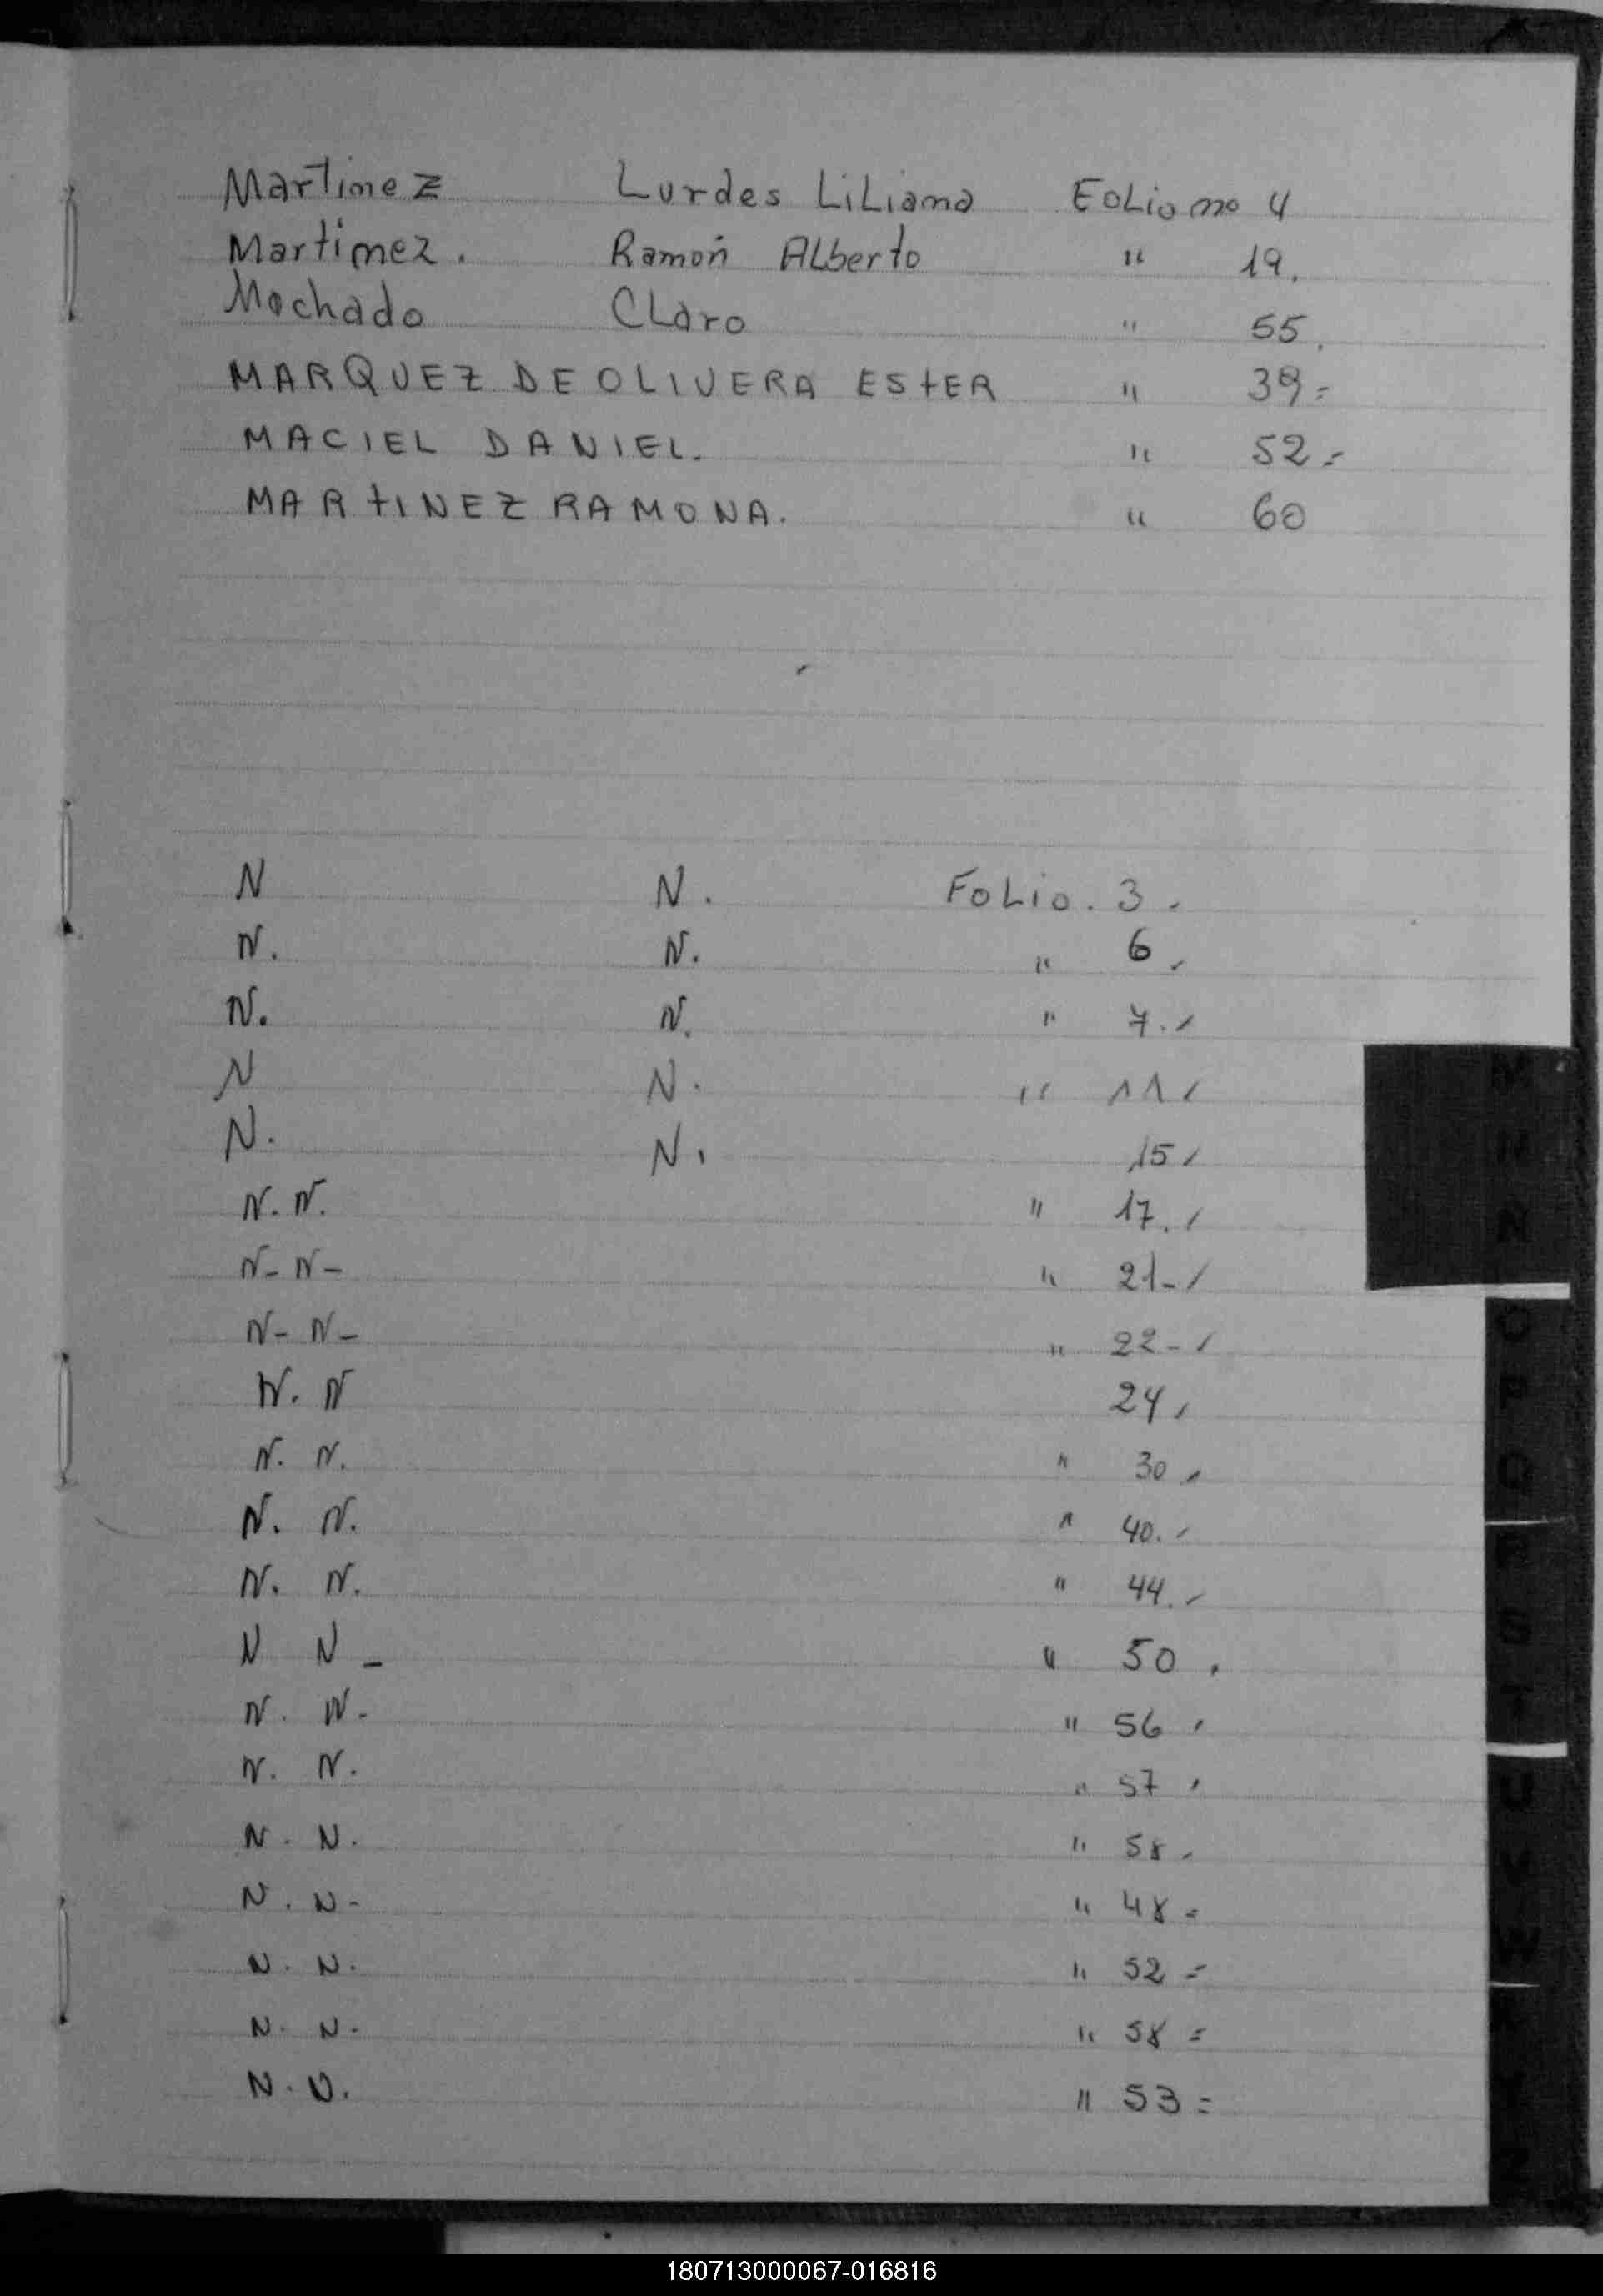 Martinez Lurdes Liliana Folio no 4
Martinez. Ramón Alberto " 19.
Machado Claro " 55.
MARQUEZ DE OLIVERA ESTER " 39=
MACIEL DANIEL. " 52=
MARTINEZ RAMONA. " 60
N N. Folio. 3.
N. N. " 6.
N. N. " 7.
N N. " 11
N. N. 15
N. N. " 17.
N- N- " 21-
N- N- " 22-
N. N 24
N. N. " 30
N. N. " 40.
N. N. " 44.
N N - " 50.
N. N. " 56
N. N. " 57
N. N. " 58.
N. N- " 48=
N. N. " 52=
N. N. " 58=
N. N. " 53=
M
N
Ñ
O
P
Q
R
S
T
U
V
W
180713000067-016816